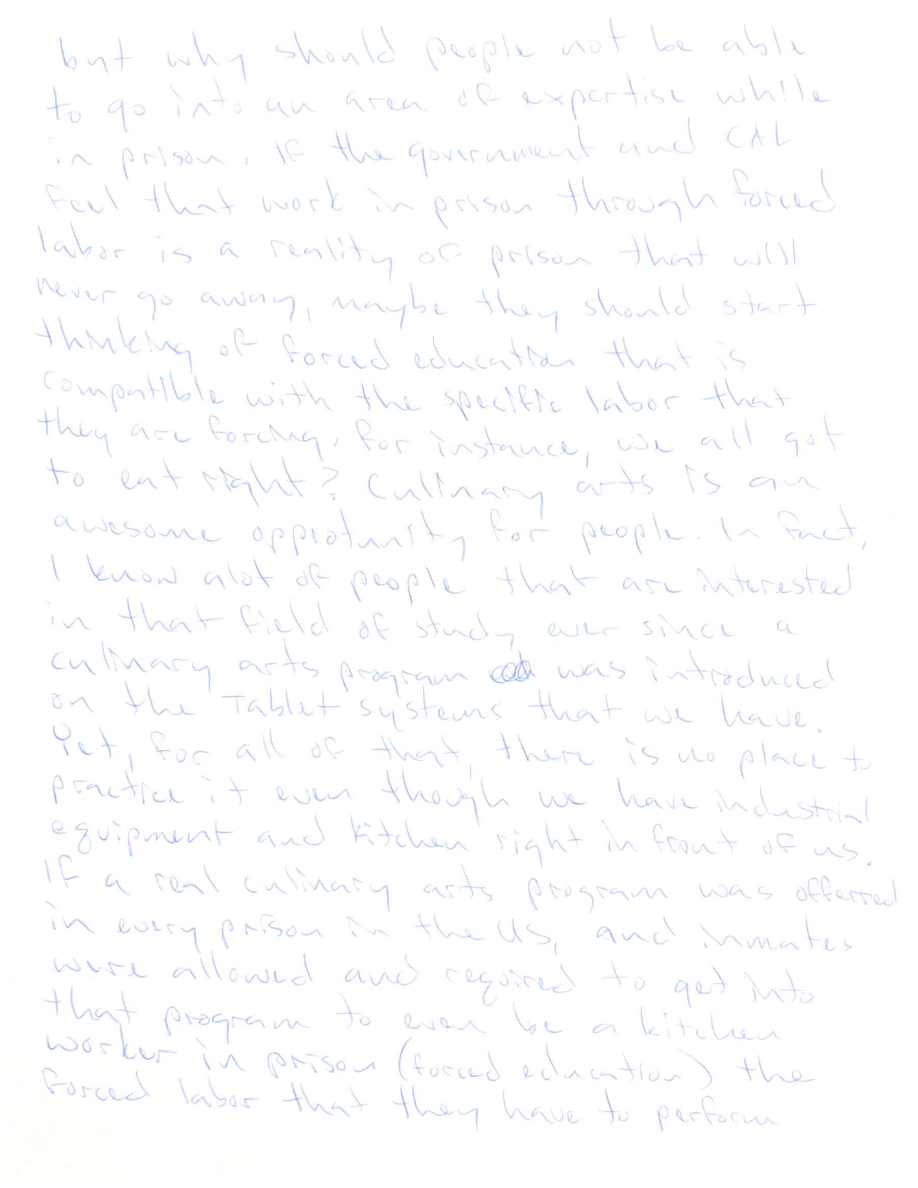 but why should people not be able
to go into an area of expertise while
in prison. If the government and CAL
feel that work in prison through forced
labor is a reality of prison that will
never go away, maybe they should start
thinking of forced education that is
compatible with the specific labor that
they are forcing. for instance, we all got
to eat right? Culinary arts is an
awesome opprotunity for people. In fact,
I know alot of people that are interested
in that field of study ever since a
culinary arts program was introduced
on the Tablet systems that we have.
Yet, for all of that, there is no place to
practice it even though we have industrial
equipment and kitchen right in front of us.
If a real culinary arts program was offerred
in every prison in the US, and inmates
were allowed and required to get into
that program to even be a kitchen
worker in prison (forced education) the
forced labor that they have to perform